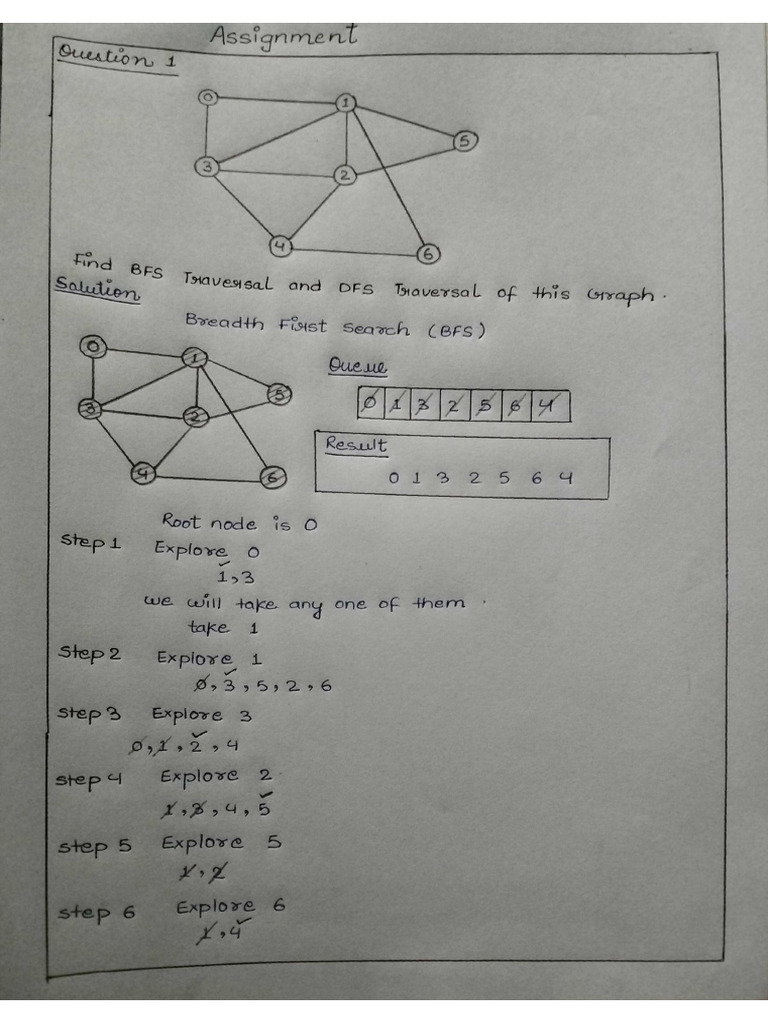 Assignment
Question 1
0 1
5
3 2
4 6
Find BFS Traversal and DFS Traversal of this Graph.
Solution
Breadth First Search (BFS)
0 1
5
3 2
4 6
Queue
0 1 3 2 5 6 4
Result
0 1 3 2 5 6 4
Root node is 0
Step 1 Explore 0
1, 3
we will take any one of them.
take 1
Step 2 Explore 1
0, 3, 5, 2, 6
Step 3 Explore 3
0, 1, 2, 4
Step 4 Explore 2
1, 3, 4, 5
Step 5 Explore 5
1, 2
Step 6 Explore 6
1, 4